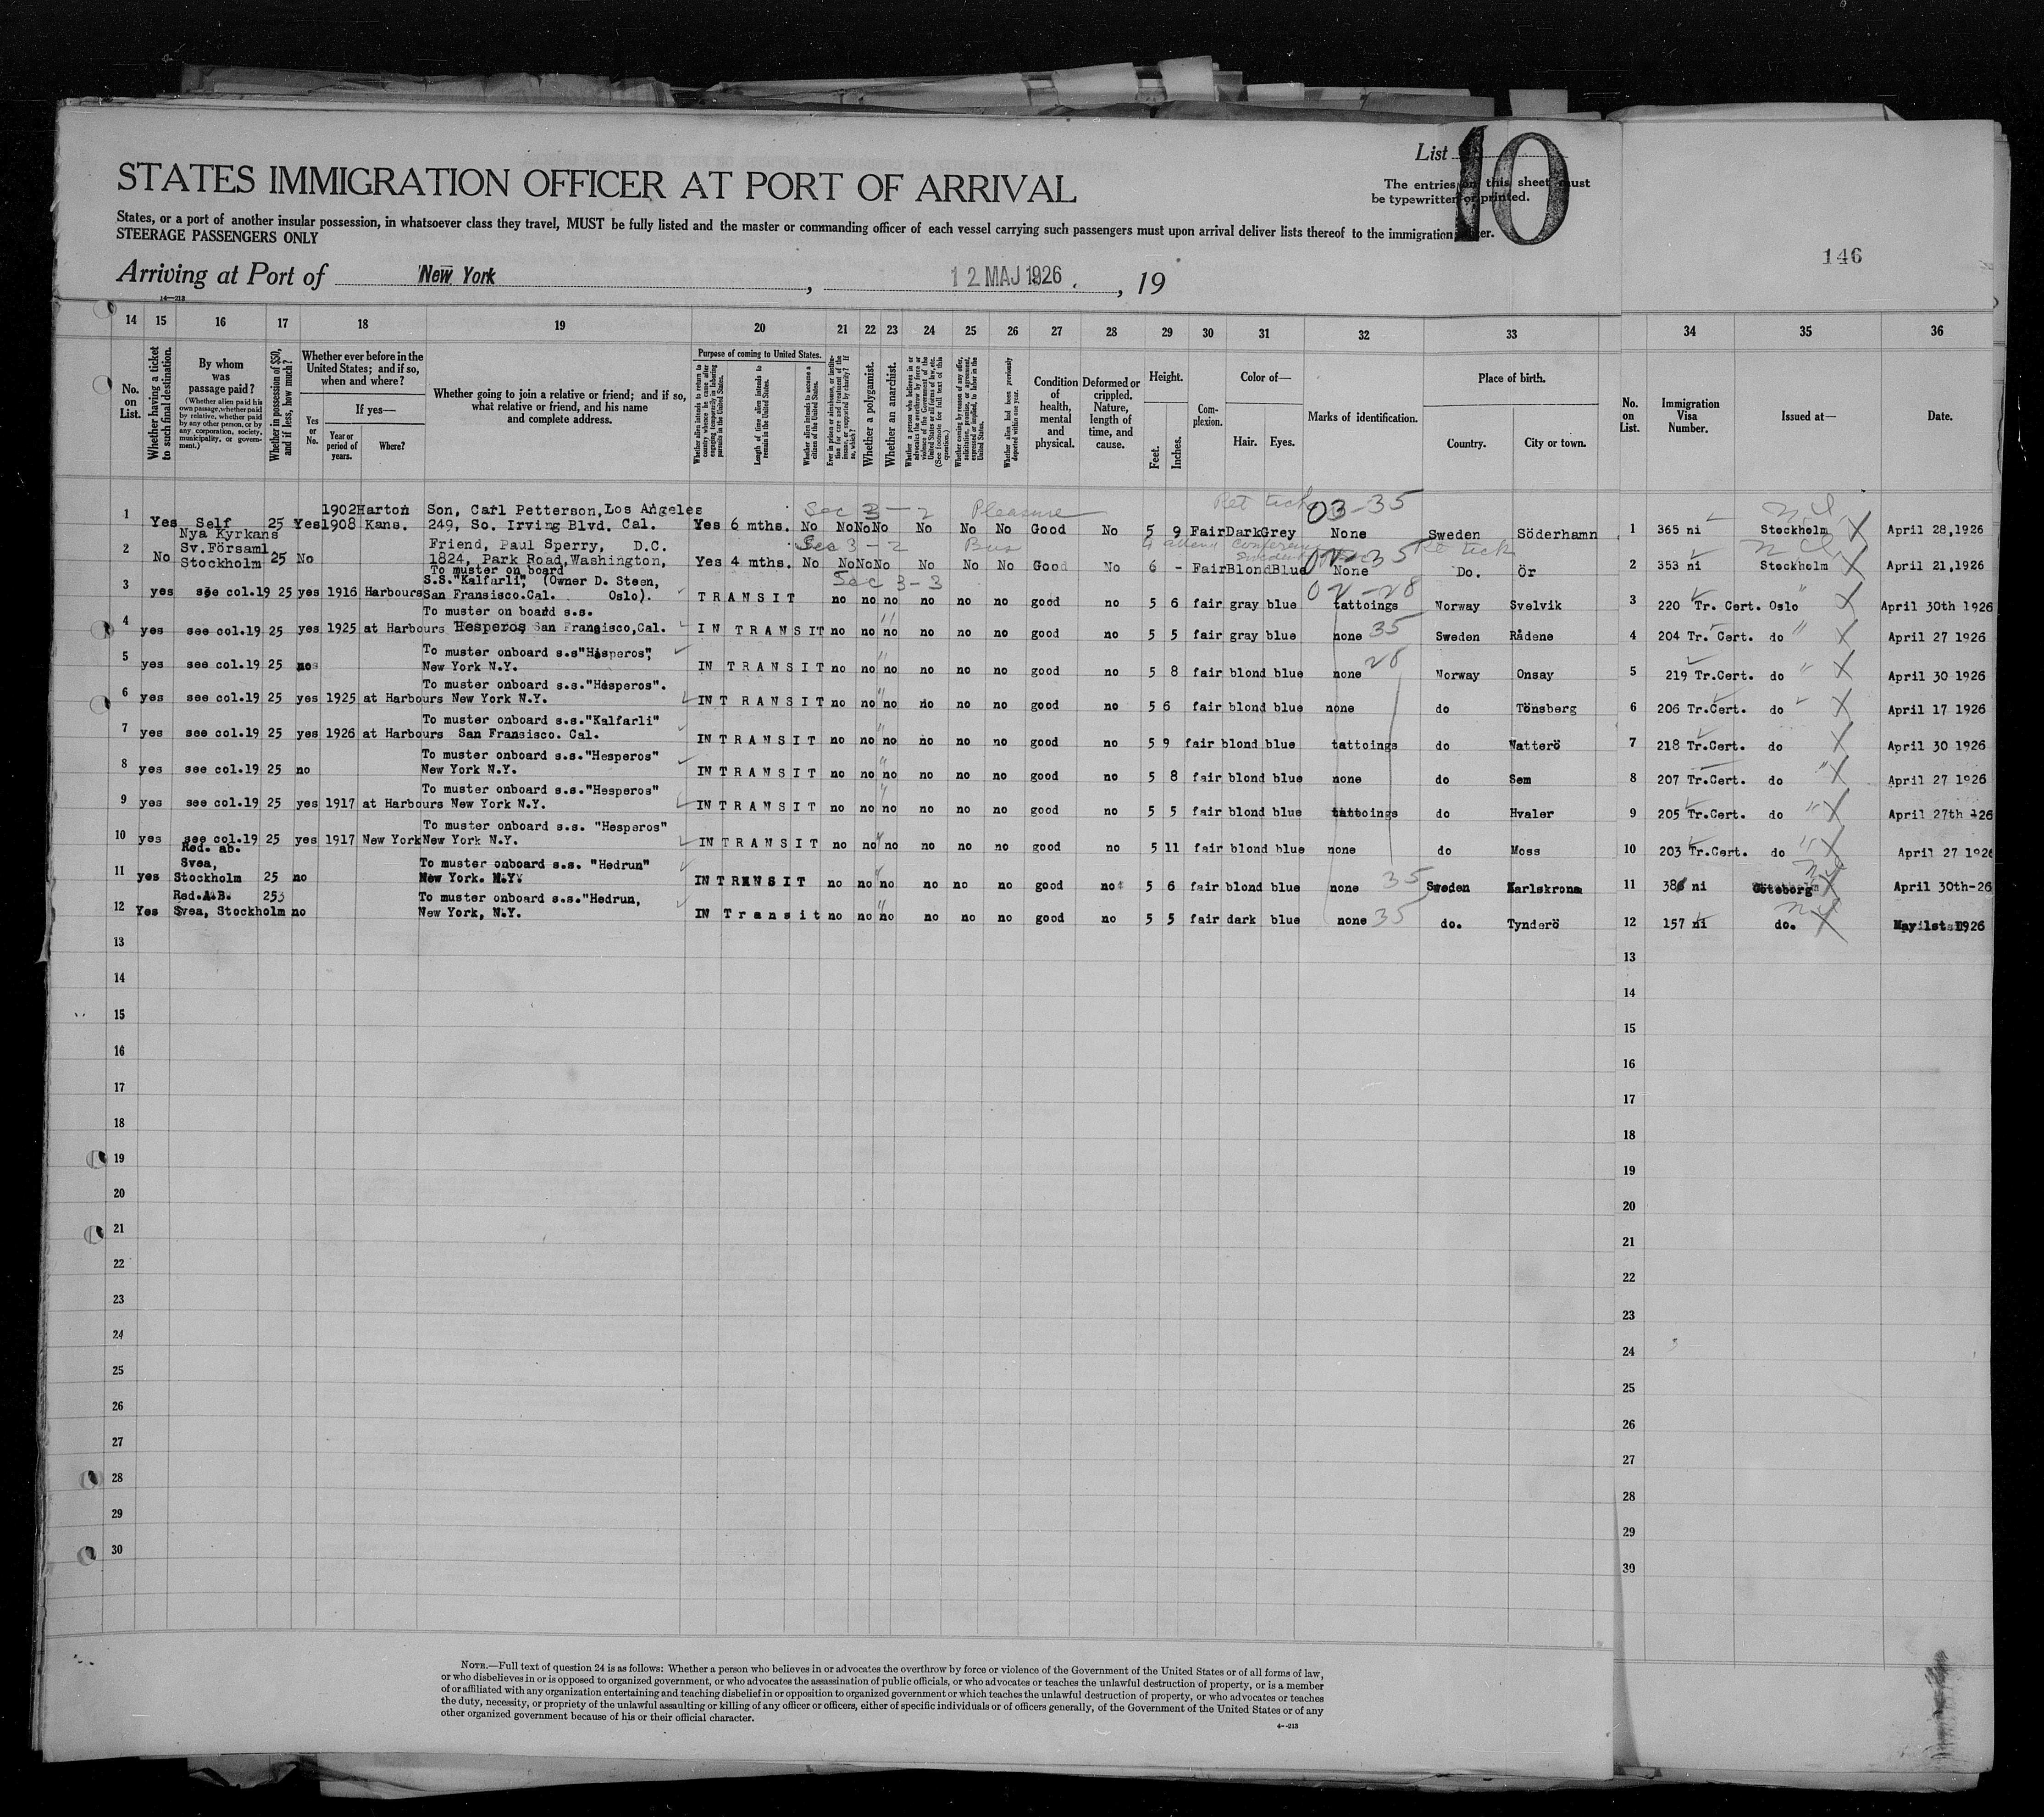 List
10
The entries on this sheet must
be typewritten or printed.
146
STATES IMMIGRATION OFFICER AT PORT OF ARRIVAL
States, or a port of another insular possession, in whatsoever class they travel, MUST be fully listed and the master or commanding officer of each vessel carrying such passengers must upon arrival deliver lists thereof to the immigration
STEERAGE PASSENGERS ONLY
Arriving at Port of New York, 12 MAJ 1926. , 19
14—213
14 15 16 17 18 19 20 21 22 23 24 25 26 27 28 29 30 31 32 33 34 35 36
No. on List.
Whether having a ticket to such final destination.
By whom was passage paid?
(Whether alien paid his own passage, whether paid by relative, whether paid by any other person, or by any corporation, society, municipality, or government.)
Whether in possession of $50, and if less, how much?
Whether ever before in the United States; and if so, when and where?
Yes or No.
If yes—
Year or period of years.
Where?
Whether going to join a relative or friend; and if so, what relative or friend, and his name and complete address.
Purpose of coming to United States.
Length of time alien intends to remain in the United States.
Whether alien intends to become a citizen of the United States.
Whether a polygamist.
Whether an anarchist.
Whether alien had been previously deported within one year.
Condition of health, mental and physical.
Deformed or crippled. Nature, length of time, and cause.
Height.
Feet.
Inches.
Complexion.
Color of—
Hair.
Eyes.
Marks of identification.
Place of birth.
Country.
City or town.
No. on List.
Immigration Visa Number.
Issued at—
Date.
Sec 3-2 Pleasure Ret tick 03-35
1 Yes Self 25 Yes 1902 1908 Harton Kans. Son, Carl Petterson, Los Angeles 249, So. Irving Blvd. Cal. Yes 6 mths. No No No No No No No Good No 5 9 Fair Dark Grey None Sweden Söderhamn 1 365 ni Stockholm April 28,1926
Sec 3-2 Bus
2 No Nya Kyrkans Sv.Församl. Stockholm 25 No Friend, Paul Sperry, D.C. 1824, Park Road, Washington, Yes 4 mths. No No No No No No No Good No 6 - Fair Blond Blue None Do. Ör 2 353 ni Stockholm April 21,1926
Sec 3-3
3 yes see col.19 25 yes 1916 Harbours To muster on board S.S."Kalfarli", (Owner D. Steen, San Fransisco.Cal. Oslo). TRANSIT no no no no no no good no 5 6 fair gray blue tattoings Norway Svelvik 3 220 Tr. Cert. Oslo April 30th 1926
4 yes see col.19 25 yes 1925 at Harbours To muster on board s.s. Hesperos San Fransisco,Cal. IN TRANSIT no no no no no no good no 5 5 fair gray blue none 35 Sweden Rådene 4 204 Tr. Cert. do April 27 1926
5 yes see col.19 25 no To muster onboard s.s"Hesperos", New York N.Y. IN TRANSIT no no no no no no good no 5 8 fair blond blue none 28 Norway Onsay 5 219 Tr.Cert. do April 30 1926
6 yes see col.19 25 yes 1925 at Harbours To muster onboard s.s."Hesperos". New York N.Y. IN TRANSIT no no no no no no good no 5 6 fair blond blue none do Tönsberg 6 206 Tr.Cert. do April 17 1926
7 yes see col.19 25 yes 1926 at Harbours To muster onboard s.s."Kalfarli" San Fransisco. Cal. IN TRANSIT no no no no no no good no 5 9 fair blond blue tattoings do Natterö 7 218 Tr.Cert. do April 30 1926
8 yes see col.19 25 no To muster onboard s.s."Hesperos" New York N.Y. IN TRANSIT no no no no no no good no 5 8 fair blond blue none do Sem 8 207 Tr.Cert. do April 27 1926
9 yes see col.19 25 yes 1917 at Harbours To muster onboard s.s."Hesperos" New York N.Y. IN TRANSIT no no no no no no good no 5 5 fair blond blue tattoings do Hvaler 9 205 Tr.Cert. do April 27th -26
10 yes see col.19 25 yes 1917 New York To muster onboard s.s. "Hesperos" New York N.Y. IN TRANSIT no no no no no no good no 5 11 fair blond blue none do Moss 10 203 Tr.Cert. do April 27 1926
11 yes Red. ab. Svea, Stockholm 25 no To muster onboard s.s. "Hedrun" New York. N.Y. IN TRANSIT no no no no no no good no 5 6 fair blond blue none 35 Sweden Karlskrona 11 386 ni Göteborg April 30th-26
12 Yes Red.A.B. Svea, Stockholm 25 no To muster onboard s.s."Hedrun, New York, N.Y. IN Transit no no no no no no good no 5 5 fair dark blue none 35 do. Tynderö 12 157 ni do. 1926
13 13
14 14
15 15
16 16
17 17
18 18
19 19
20 20
21 21
22 22
23 23
24 24
25 25
26 26
27 27
28 28
29 29
30 30
NOTE.—Full text of question 24 is as follows: Whether a person who believes in or advocates the overthrow by force or violence of the Government of the United States or of all forms of law,
or who disbelieves in or is opposed to organized government, or who advocates the assassination of public officials, or who advocates or teaches the unlawful destruction of property, or is a member
of or affiliated with any organization entertaining and teaching disbelief in or opposition to organized government or which teaches the unlawful destruction of property, or who advocates or teaches
the duty, necessity, or propriety of the unlawful assaulting or killing of any officer or officers, either of specific individuals or of officers generally, of the Government of the United States or of any
other organized government because of his or their official character.
4--213